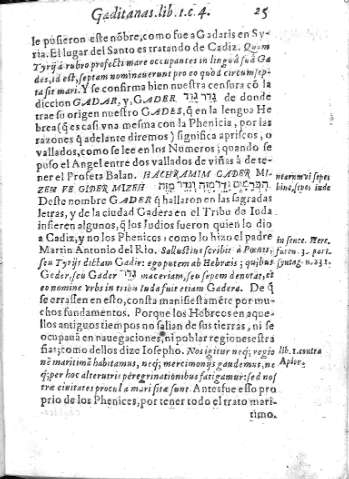 Gaditanas. lib. 1. c. 4. 25
le pusieron este nõbre, como fue a Gadaris en Sy-
ria. El lugar del Santo es tratando de Cadiz. Quam
Tyrij à rubro profecti mare occupantes in lingua sua Ga
des, id est, septam nominauerunt pro eo quòd circumsep-
ta sit mari. Y se confirma bien nuestra censura cõ la
diccion GADAR, y, GADER גדר גדר de donde
trae su origen nuestro GADES, q̃ en la lengua He
brea (q̃ es casi vna mesma con la Phenicia, por las
razones q̃ adelante diremos) significa apriscos, o
vallados, como se lee en los Numeros; quando se
puso el Angel entre dos vallados de viñas à de te-
ner el Profeta Balan. HACHRAMIM GADER MI-
ZEH VE GIDER MIZEH הכרמים גדר מזה וגדר מזה
Deste nombre GADER q̃ hallaron en las sagradas
letras, y de la ciudad Gadera en el Tribu de Iuda
infieren algunos, q̃ los Iudios fueron quien lo dio
a Cadiz, y no los Phenices: como lo hizo el padre
Martin Antonio del Rio. Sallustius scribit à Punis,
seu Tyrijs dictam Gadir: ego putem ab Hebrais; quibus
Geder, seu Gader גדר maceriam, seu sepem denotat, et
eo nomine vrbs in tribu Iuda fuit etiam Gadera. De q̃
se errassen en esto, consta manifiestamẽte por mu-
chos fundamentos. Porque los Hebreos en aque-
llos antiguos tiempos no salian de sus tierras, ni se
ocupauã en nauegaciones, ni poblar regiones estra
ñas; como dellos dize Iosepho. Nos igitur neq; regio
nẽ maritimã habitamus, neq; mercimonijs gaudemus, ne
q; per hoc alterutris peregrinationibus fatigamur: sed nos
træ ciuitates procul a mari sitæ sunt. Antes fue esso pro
prio de los Phenices, por tener todo el trato mari-
timo.
in sente. Mere.
fueca. 3. part.
syntag. n. 232.
lib. 1. contra
Apior.